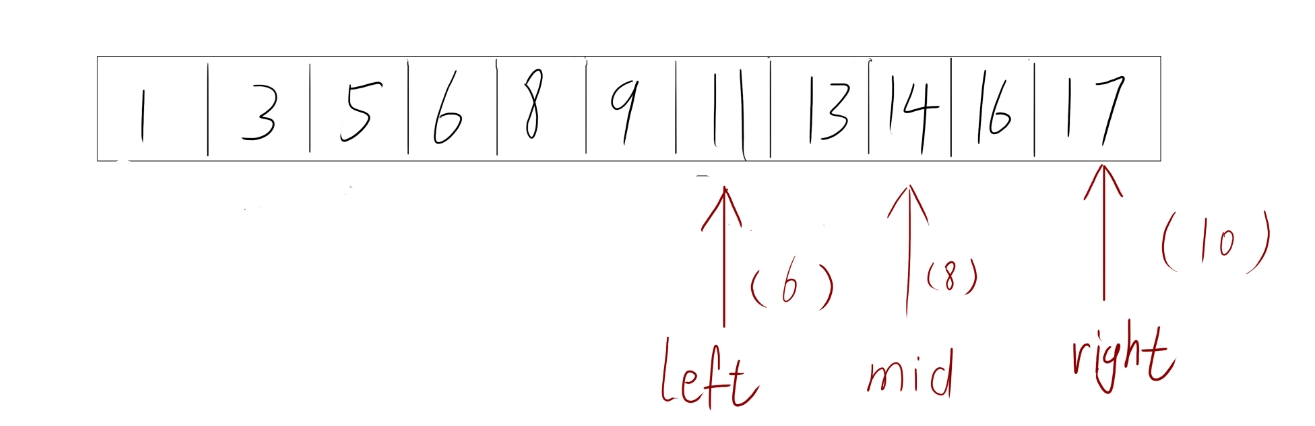 1 3 5 6 8 9 11 13 14 16 17
(6) (8) (10)
left mid right